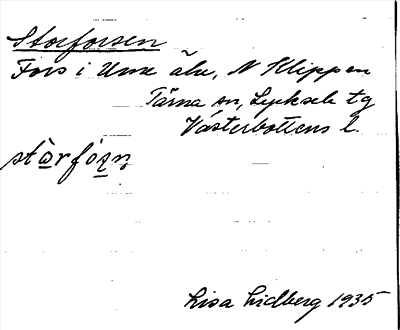 Storforsen
Fors i Ume älv, N Klippen
Tärna sn, Lycksele tg
Västerbottens l.
stòrfó
Lisa Lidberg 1935